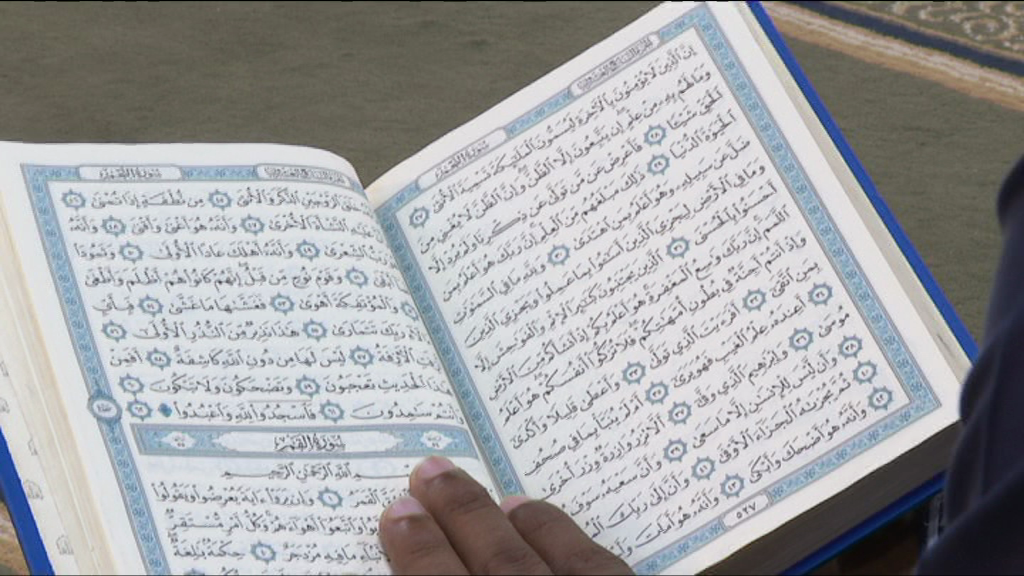 سُورَةُ النَّجْمِ
إِنَّ الَّذِينَ لَا يُؤْمِنُونَ بِالْآخِرَةِ لَيُسَمُّونَ الْمَلَٰئِكَةَ تَسْمِيَةَ الْأُنثَىٰ ٢٧
وَمَا لَهُم بِهِ مِنْ عِلْمٍ إِن يَتَّبِعُونَ إِلَّا الظَّنَّ وَإِنَّ الظَّنَّ لَا يُغْنِي مِنَ
الْحَقِّ شَيْئًا ٢٨ فَأَعْرِضْ عَن مَّن تَوَلَّىٰ عَن ذِكْرِنَا وَلَمْ يُرِدْ إِلَّا
الْحَيَوٰةَ الدُّنْيَا ٢٩ ذَٰلِكَ مَبْلَغُهُم مِّنَ الْعِلْمِ إِنَّ رَبَّكَ هُوَ أَعْلَمُ بِمَن
ضَلَّ عَن سَبِيلِهِ وَهُوَ أَعْلَمُ بِمَنِ اهْتَدَىٰ ٣٠ وَلِلَّهِ مَا فِي السَّمَٰوَٰتِ
وَمَا فِي الْأَرْضِ لِيَجْزِيَ الَّذِينَ أَسَٰٓـُٔوا بِمَا عَمِلُوا وَيَجْزِيَ الَّذِينَ
أَحْسَنُوا بِالْحُسْنَى ٣١ الَّذِينَ يَجْتَنِبُونَ كَبَٰٓئِرَ الْإِثْمِ وَالْفَوَٰحِشَ إِلَّا
اللَّمَمَ إِنَّ رَبَّكَ وَٰسِعُ الْمَغْفِرَةِ هُوَ أَعْلَمُ بِكُمْ إِذْ أَنشَأَكُم مِّنَ الْأَرْضِ
وَإِذْ أَنتُمْ أَجِنَّةٌ فِي بُطُونِ أُمَّهَٰتِكُمْ فَلَا تُزَكُّوا أَنفُسَكُمْ هُوَ أَعْلَمُ
بِمَنِ اتَّقَىٰ ٣٢ أَفَرَءَيْتَ الَّذِي تَوَلَّىٰ ٣٣ وَأَعْطَىٰ قَلِيلًا وَأَكْدَىٰ
٣٤ أَعِندَهُ عِلْمُ الْغَيْبِ فَهُوَ يَرَىٰ ٣٥ أَمْ لَمْ يُنَبَّأْ بِمَا فِي صُحُفِ
مُوسَىٰ ٣٦ وَإِبْرَٰهِيمَ الَّذِي وَفَّىٰ ٣٧ أَلَّا تَزِرُ وَازِرَةٌ وِزْرَ أُخْرَىٰ
٣٨ وَأَن لَّيْسَ لِلْإِنسَٰنِ إِلَّا مَا سَعَىٰ ٣٩ وَأَنَّ سَعْيَهُ سَوْفَ
٤٠ ثُمَّ يُجْزَىٰهُ الْجَزَآءَ الْأَوْفَىٰ ٤١ وَأَنَّ إِلَىٰ رَبِّكَ
٤٢ وَأَنَّهُ هُوَ أَضْحَكَ وَأَبْكَىٰ ٤٣ وَأَنَّهُ هُوَ أَمَاتَ
٥٢٧
سُورَةُ النَّجْمِ
الزَّوْجَيْنِ الذَّكَرَ وَالْأُنثَىٰ ٤٥ مِن نُّطْفَةٍ إِذَا تُمْنَىٰ ٤٦
النَّشْأَةَ الْأُخْرَىٰ ٤٧ وَأَنَّهُ هُوَ أَغْنَىٰ وَأَقْنَىٰ ٤٨ وَأَنَّهُ
الشِّعْرَىٰ ٤٩ وَأَنَّهُ أَهْلَكَ عَادًا الْأُولَىٰ ٥٠ وَثَمُودَا
أَبْقَىٰ ٥١ وَقَوْمَ نُوحٍ مِّن قَبْلُ إِنَّهُمْ كَانُوا هُمْ أَظْلَمَ وَأَطْغَىٰ
٥٢ وَالْمُؤْتَفِكَةَ أَهْوَىٰ ٥٣ فَغَشَّىٰهَا مَا غَشَّىٰ ٥٤ فَبِأَيِّ
رَبِّكَ تَتَمَارَىٰ ٥٥ هَٰذَا نَذِيرٌ مِّنَ النُّذُرِ الْأُولَىٰ ٥٦
الْآزِفَةُ ٥٧ لَيْسَ لَهَا مِن دُونِ اللَّهِ كَاشِفَةٌ ٥٨ أَفَمِنْ
هَٰذَا الْحَدِيثِ تَعْجَبُونَ ٥٩ وَتَضْحَكُونَ وَلَا تَبْكُونَ ٦٠
وَأَنتُمْ سَٰمِدُونَ ٦١ فَاسْجُدُوا لِلَّهِ وَاعْبُدُوا ۩ ٦٢
سُورَةُ الْقَمَرِ
اللَّهِ الرَّحْمَٰنِ الرَّحِيمِ
الْقَمَرُ ١ وَإِن يَرَوْا ءَايَةً يُعْرِضُوا وَيَقُولُوا
وَاتَّبَعُوا أَهْوَآءَهُمْ وَكُلُّ أَمْرٍ مُّسْتَقِرٌّ
مَا فِيهِ مُزْدَجَرٌ ٤ حِكْمَةٌ بَٰلِغَةٌ